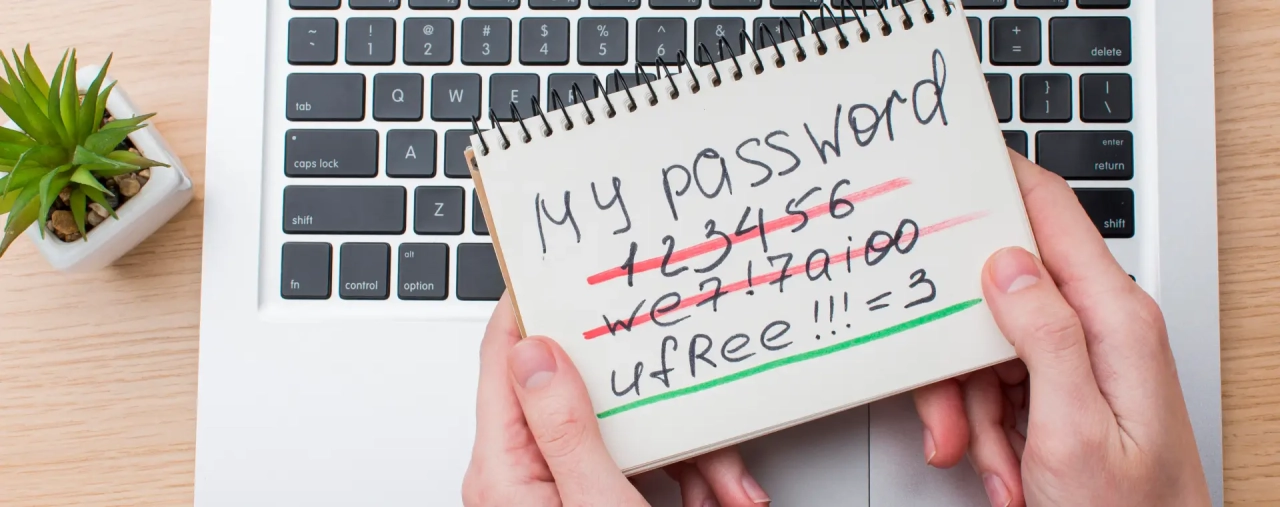 ~ `
! 1
@ 2
# 3
$ 4
% 5
^ 6
&
+ =
delete
tab
Q
W
E
R
} ]
| \
caps lock
A
enter
return
shift
Z
shift
fn
control
alt
option
My password
123456
we7!7aioo
ufRee!!!=3